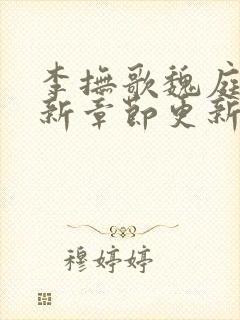 李抚歌魏庭
新章节更新
穆婷婷